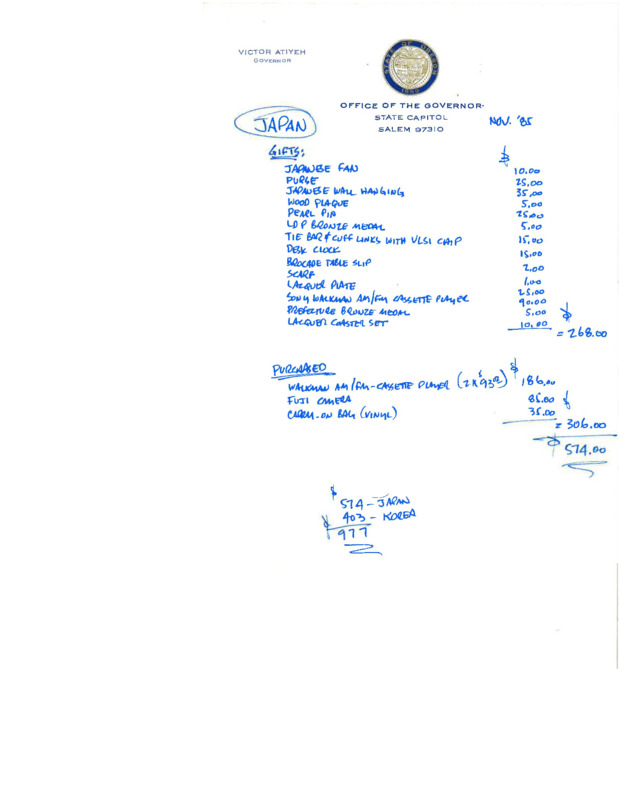 VICTOR ATIYEH
GOVERNOR
STATE OF OREGON
1859
OFFICE OF THE GOVERNOR
STATE CAPITOL
SALEM 97310
JAPAN
NOV. '85
GIFTS: $
JAPANESE FAN 10.00
PURSE 25.00
JAPANESE WALL HANGING 35.00
WOOD PLAQUE 5.00
PEARL PIN 25.00
LDP BRONZE MEDAL 5.00
TIE BAR & CUFF LINKS WITH VLSI CHIP 15.00
DESK CLOCK 15.00
BROCADE TABLE SLIP 2.00
SCARF 1.00
LACQUER PLATE 25.00
SONY WALKMAN AM/FM CASSETTE PLAYER 90.00
PREFECTURE BRONZE MEDAL 5.00
LACQUER COASTER SET 10.00
$ = 268.00
PURCHASED
WALKMAN AM/FM-CASSETTE PLAYER (2 X $93.00) $ 186.00
FUJI CAMERA 85.00
CARRY-ON BAG (VINYL) 35.00
$ = 306.00
$ 574.00
$ 574 - JAPAN
403 - KOREA
$ 977